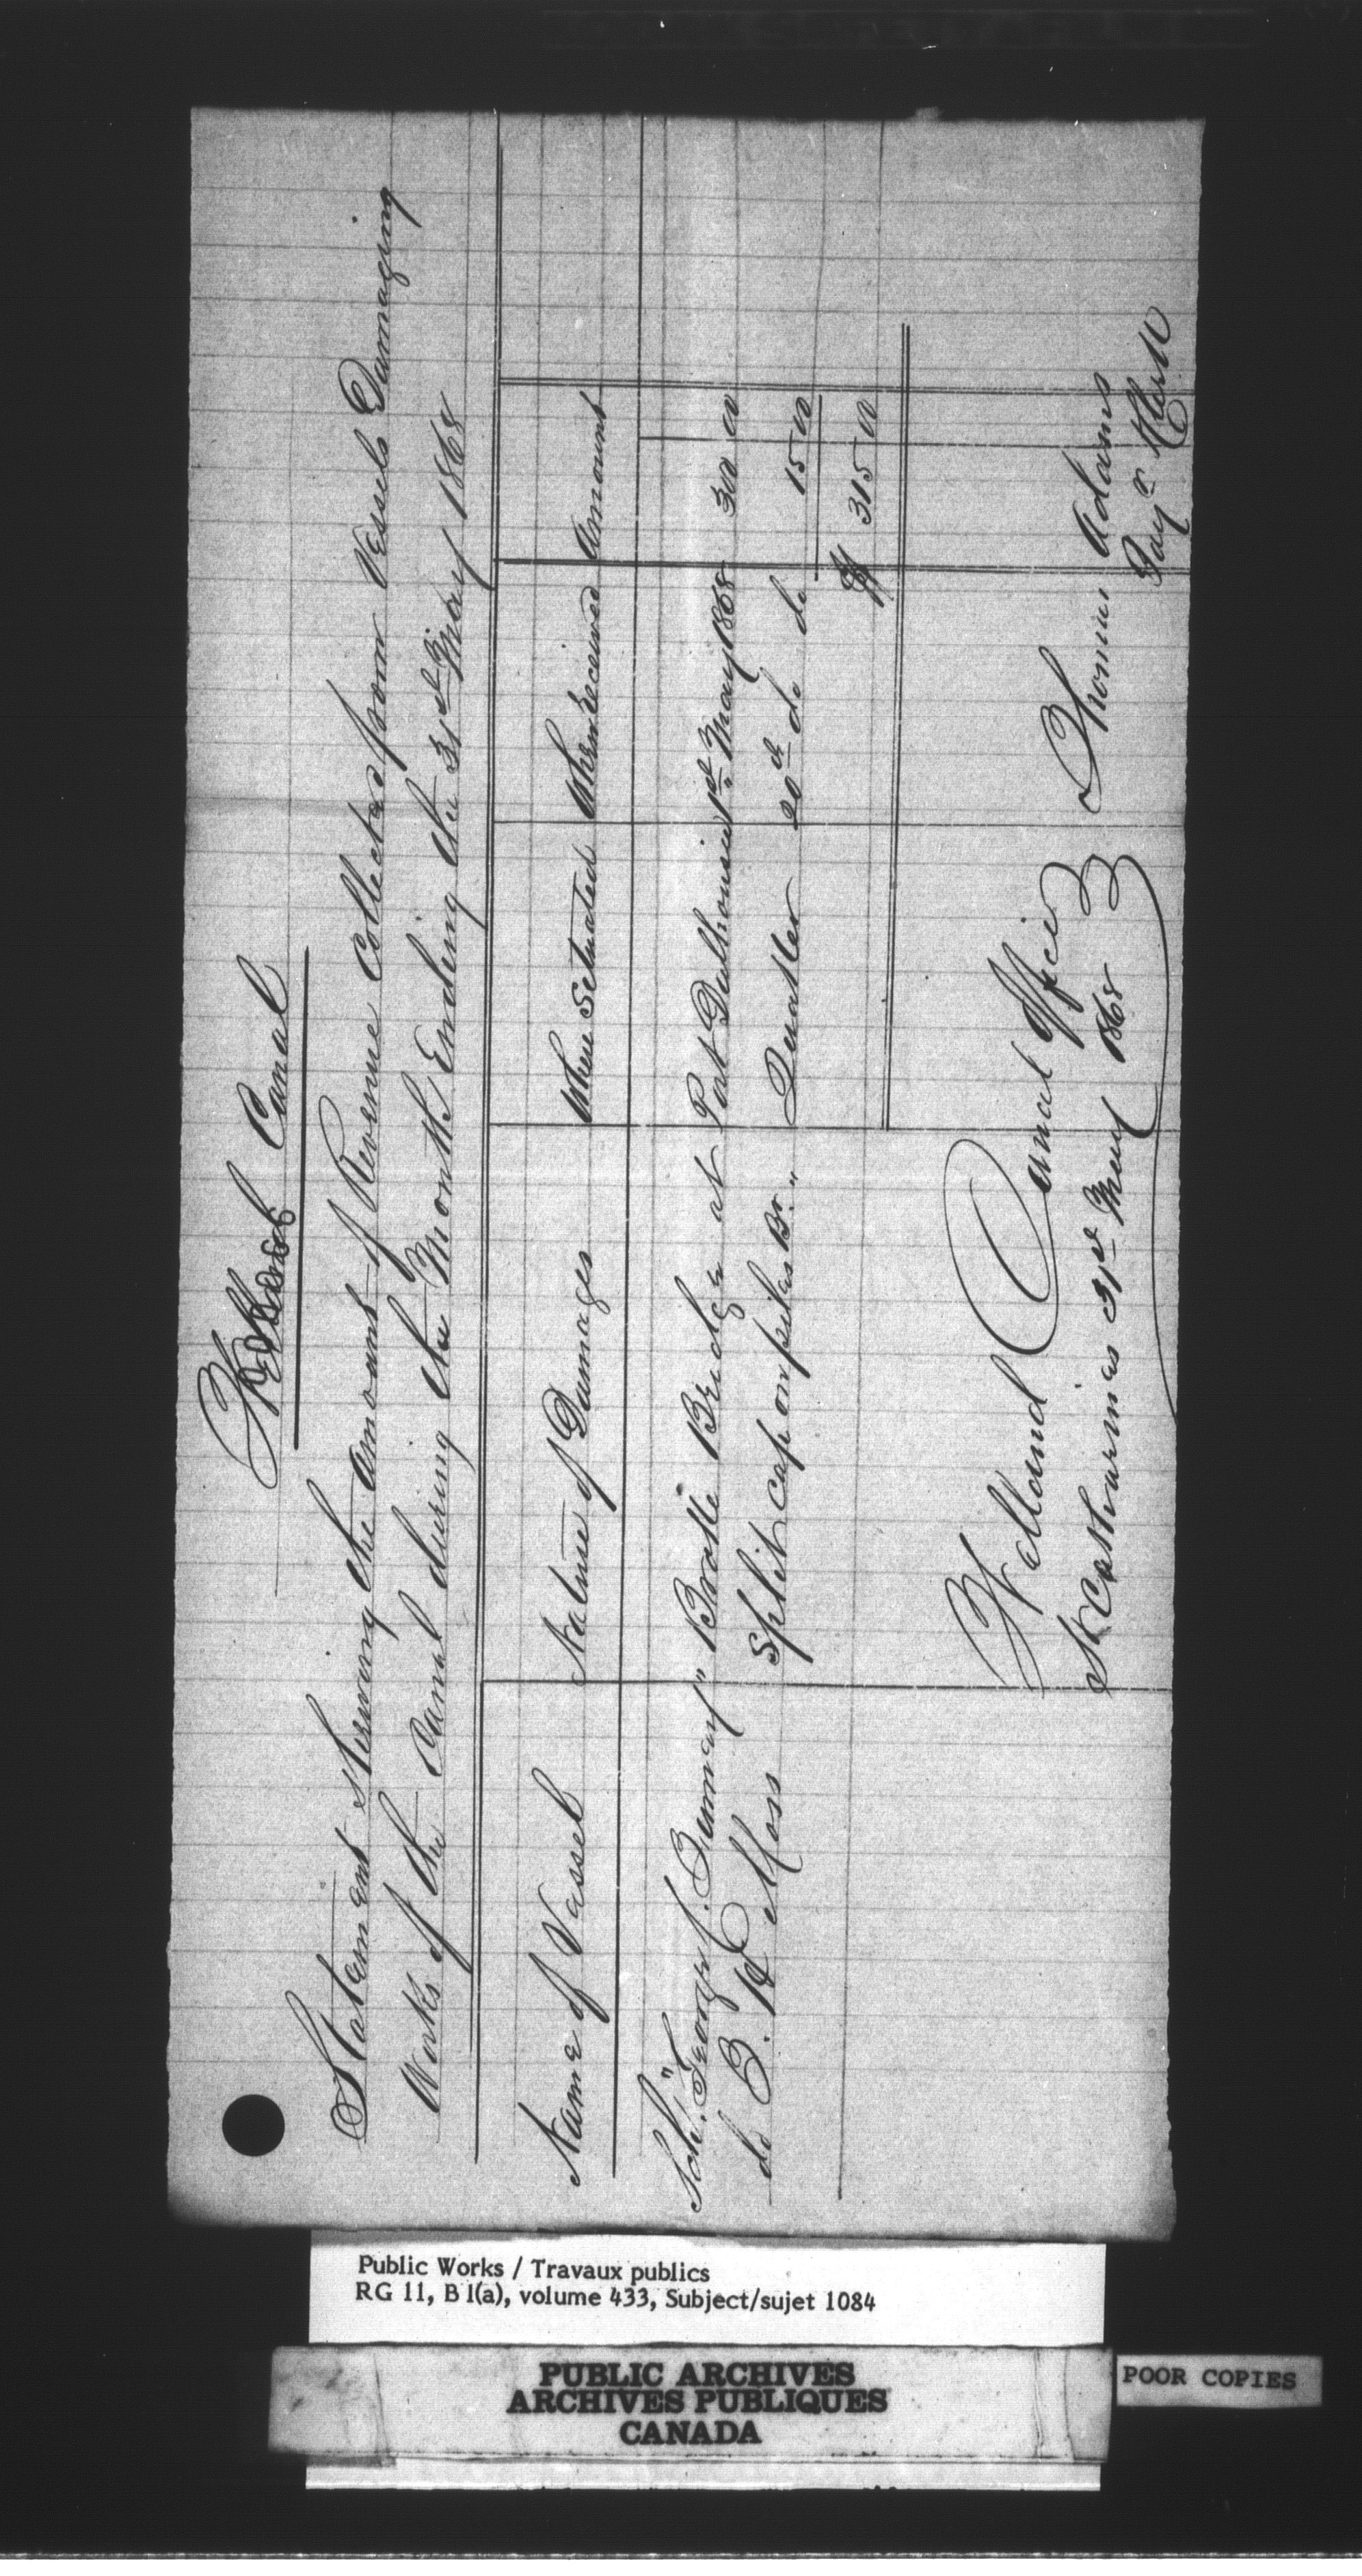 Welland Canal
Statement shewing the amount of Revenue Collected from Vessels Damaging
Works of the Canal during the Month Ending the 31st May 1868
Name of Vessel Nature of Damages Where Situated When received Amount
Sch. "George J. " Broke Bridge at Port Dalhousie 1st May 1868 300 00
do B. F. Split cap on piles Br. " 20th do do 15 00
$ 315 00
Welland Canal Office
St Catharines 31st May 1868
Thomas Adams
Pay Clerk
Public Works / Travaux publics
RG 11, B1(a), volume 433, Subject/sujet 1084
PUBLIC ARCHIVES
ARCHIVES PUBLIQUES
CANADA
POOR COPIES